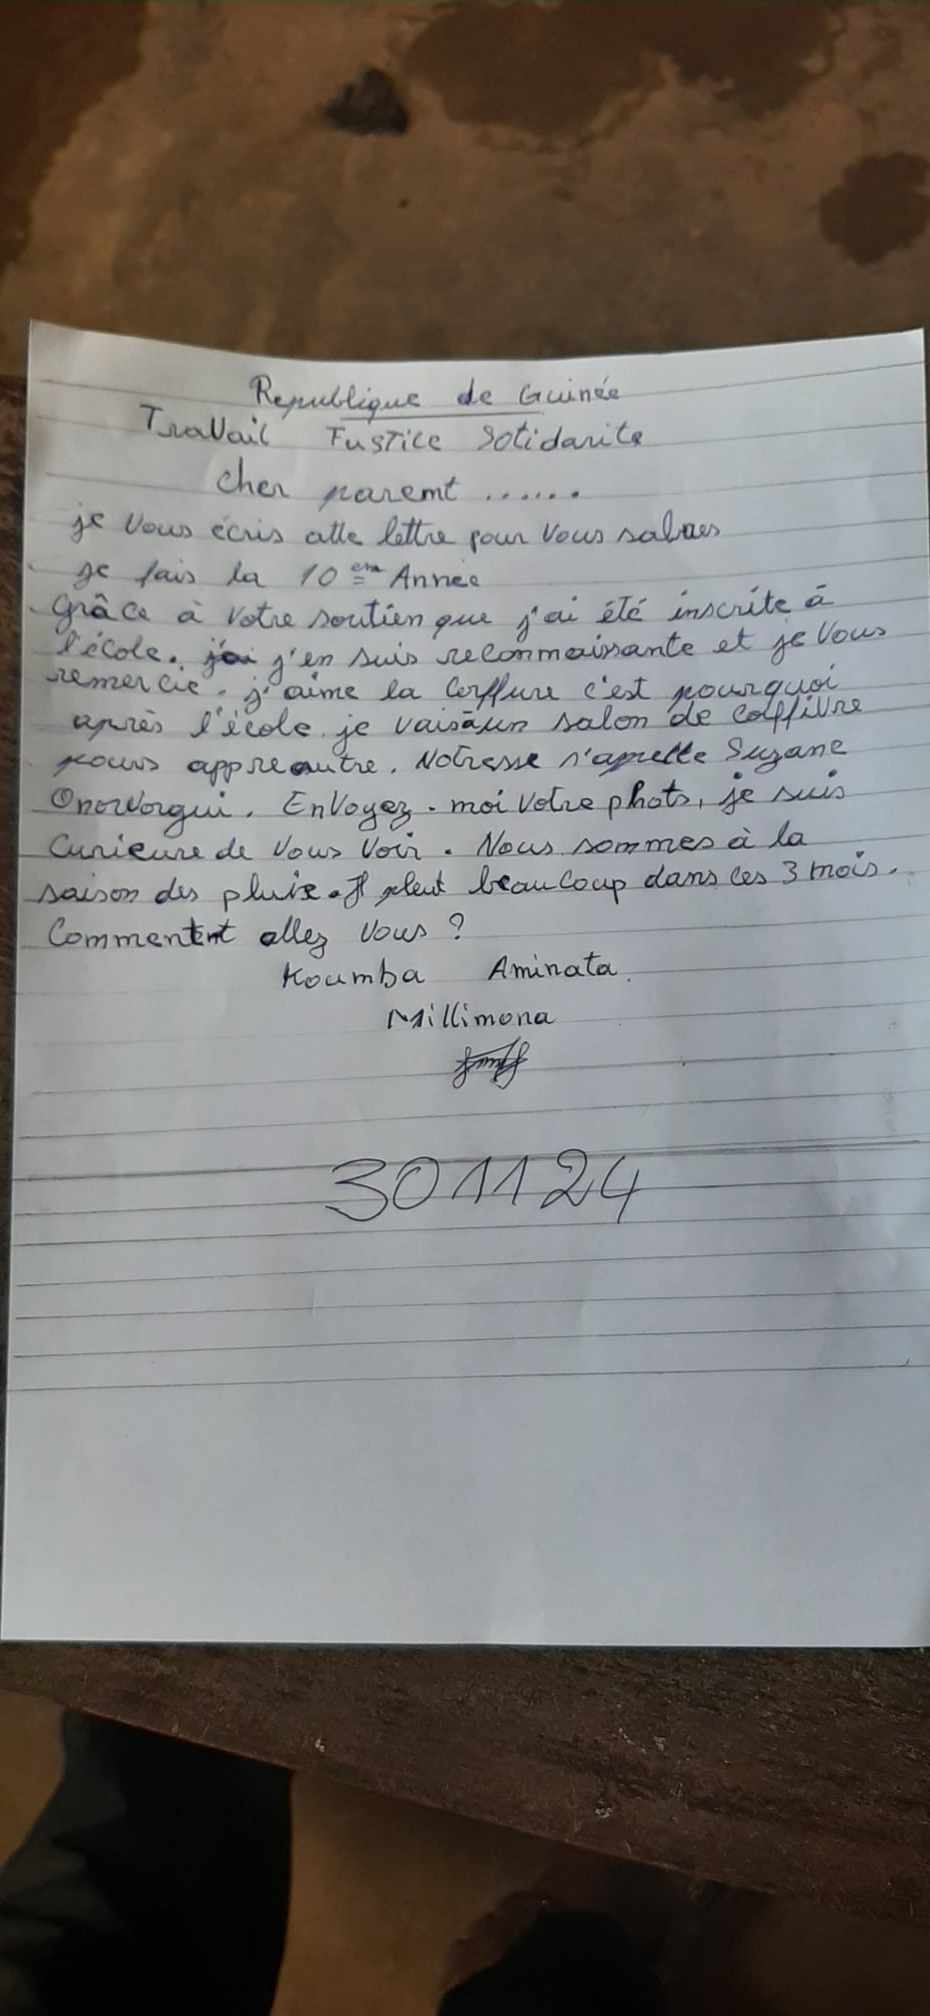 Republique de Guinée
Travail Fustice Sotidarite
cher paremt ......
je vous écris atte lettre pour vous salues
je fais la 10 ème Année
Grâce à votre soutien que j'ai été inscrite à
l'école. j'en suis reconnaissante et je vous
remercie. j'aime la Coeffure c'est pourquoi
après l'école je vais à un salon de coiffivre
pours appreautre. Notresse s'apuelle Suzane
Onorvorgui. Envoyez-moi votre photo, je suis
Curieure de vous voir. Nous sommes à la
saison des pluie. Il pleut beaucoup dans ces 3 mois.
Comment allez vous ?
Koumba Aminata.
Millimona
301124